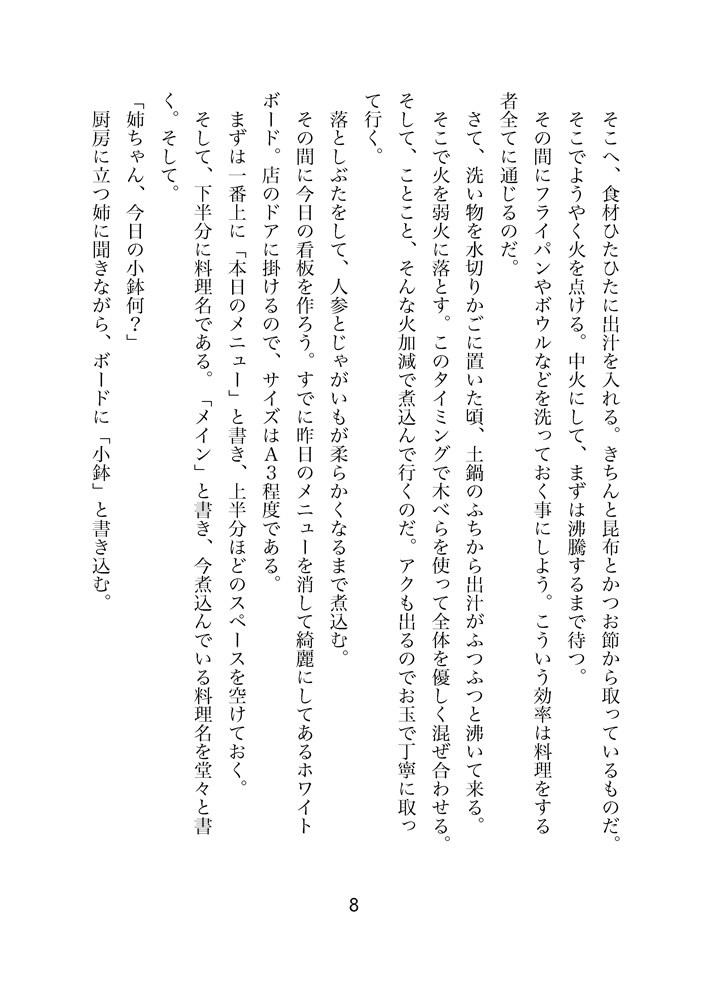 そこへ、食材ひたひたに出汁を入れる。きちんと昆布とかつお節から取っているものだ。
そこでようやく火を点ける。中火にして、まずは沸騰するまで待つ。
その間にフライパンやボウルなどを洗っておく事にしよう。こういう効率は料理をする
者全てに通じるのだ。
さて、洗い物を水切りかごに置いた頃、土鍋のふちから出汁がふつふつと沸いて来る。
そこで火を弱火に落とす。このタイミングで木べらを使って全体を優しく混ぜ合わせる。
そして、ことこと、そんな火加減で煮込んで行くのだ。アクも出るのでお玉で丁寧に取っ
て行く。
落としぶたをして、人参とじゃがいもが柔らかくなるまで煮込む。
その間に今日の看板を作ろう。すでに昨日のメニューを消して綺麗にしてあるホワイト
ボード。店のドアに掛けるので、サイズはＡ３程度である。
まずは一番上に「本日のメニュー」と書き、上半分ほどのスペースを空けておく。
そして、下半分に料理名である。「メイン」と書き、今煮込んでいる料理名を堂々と書
く。そして。
「姉ちゃん、今日の小鉢何？」
厨房に立つ姉に聞きながら、ボードに「小鉢」と書き込む。
8